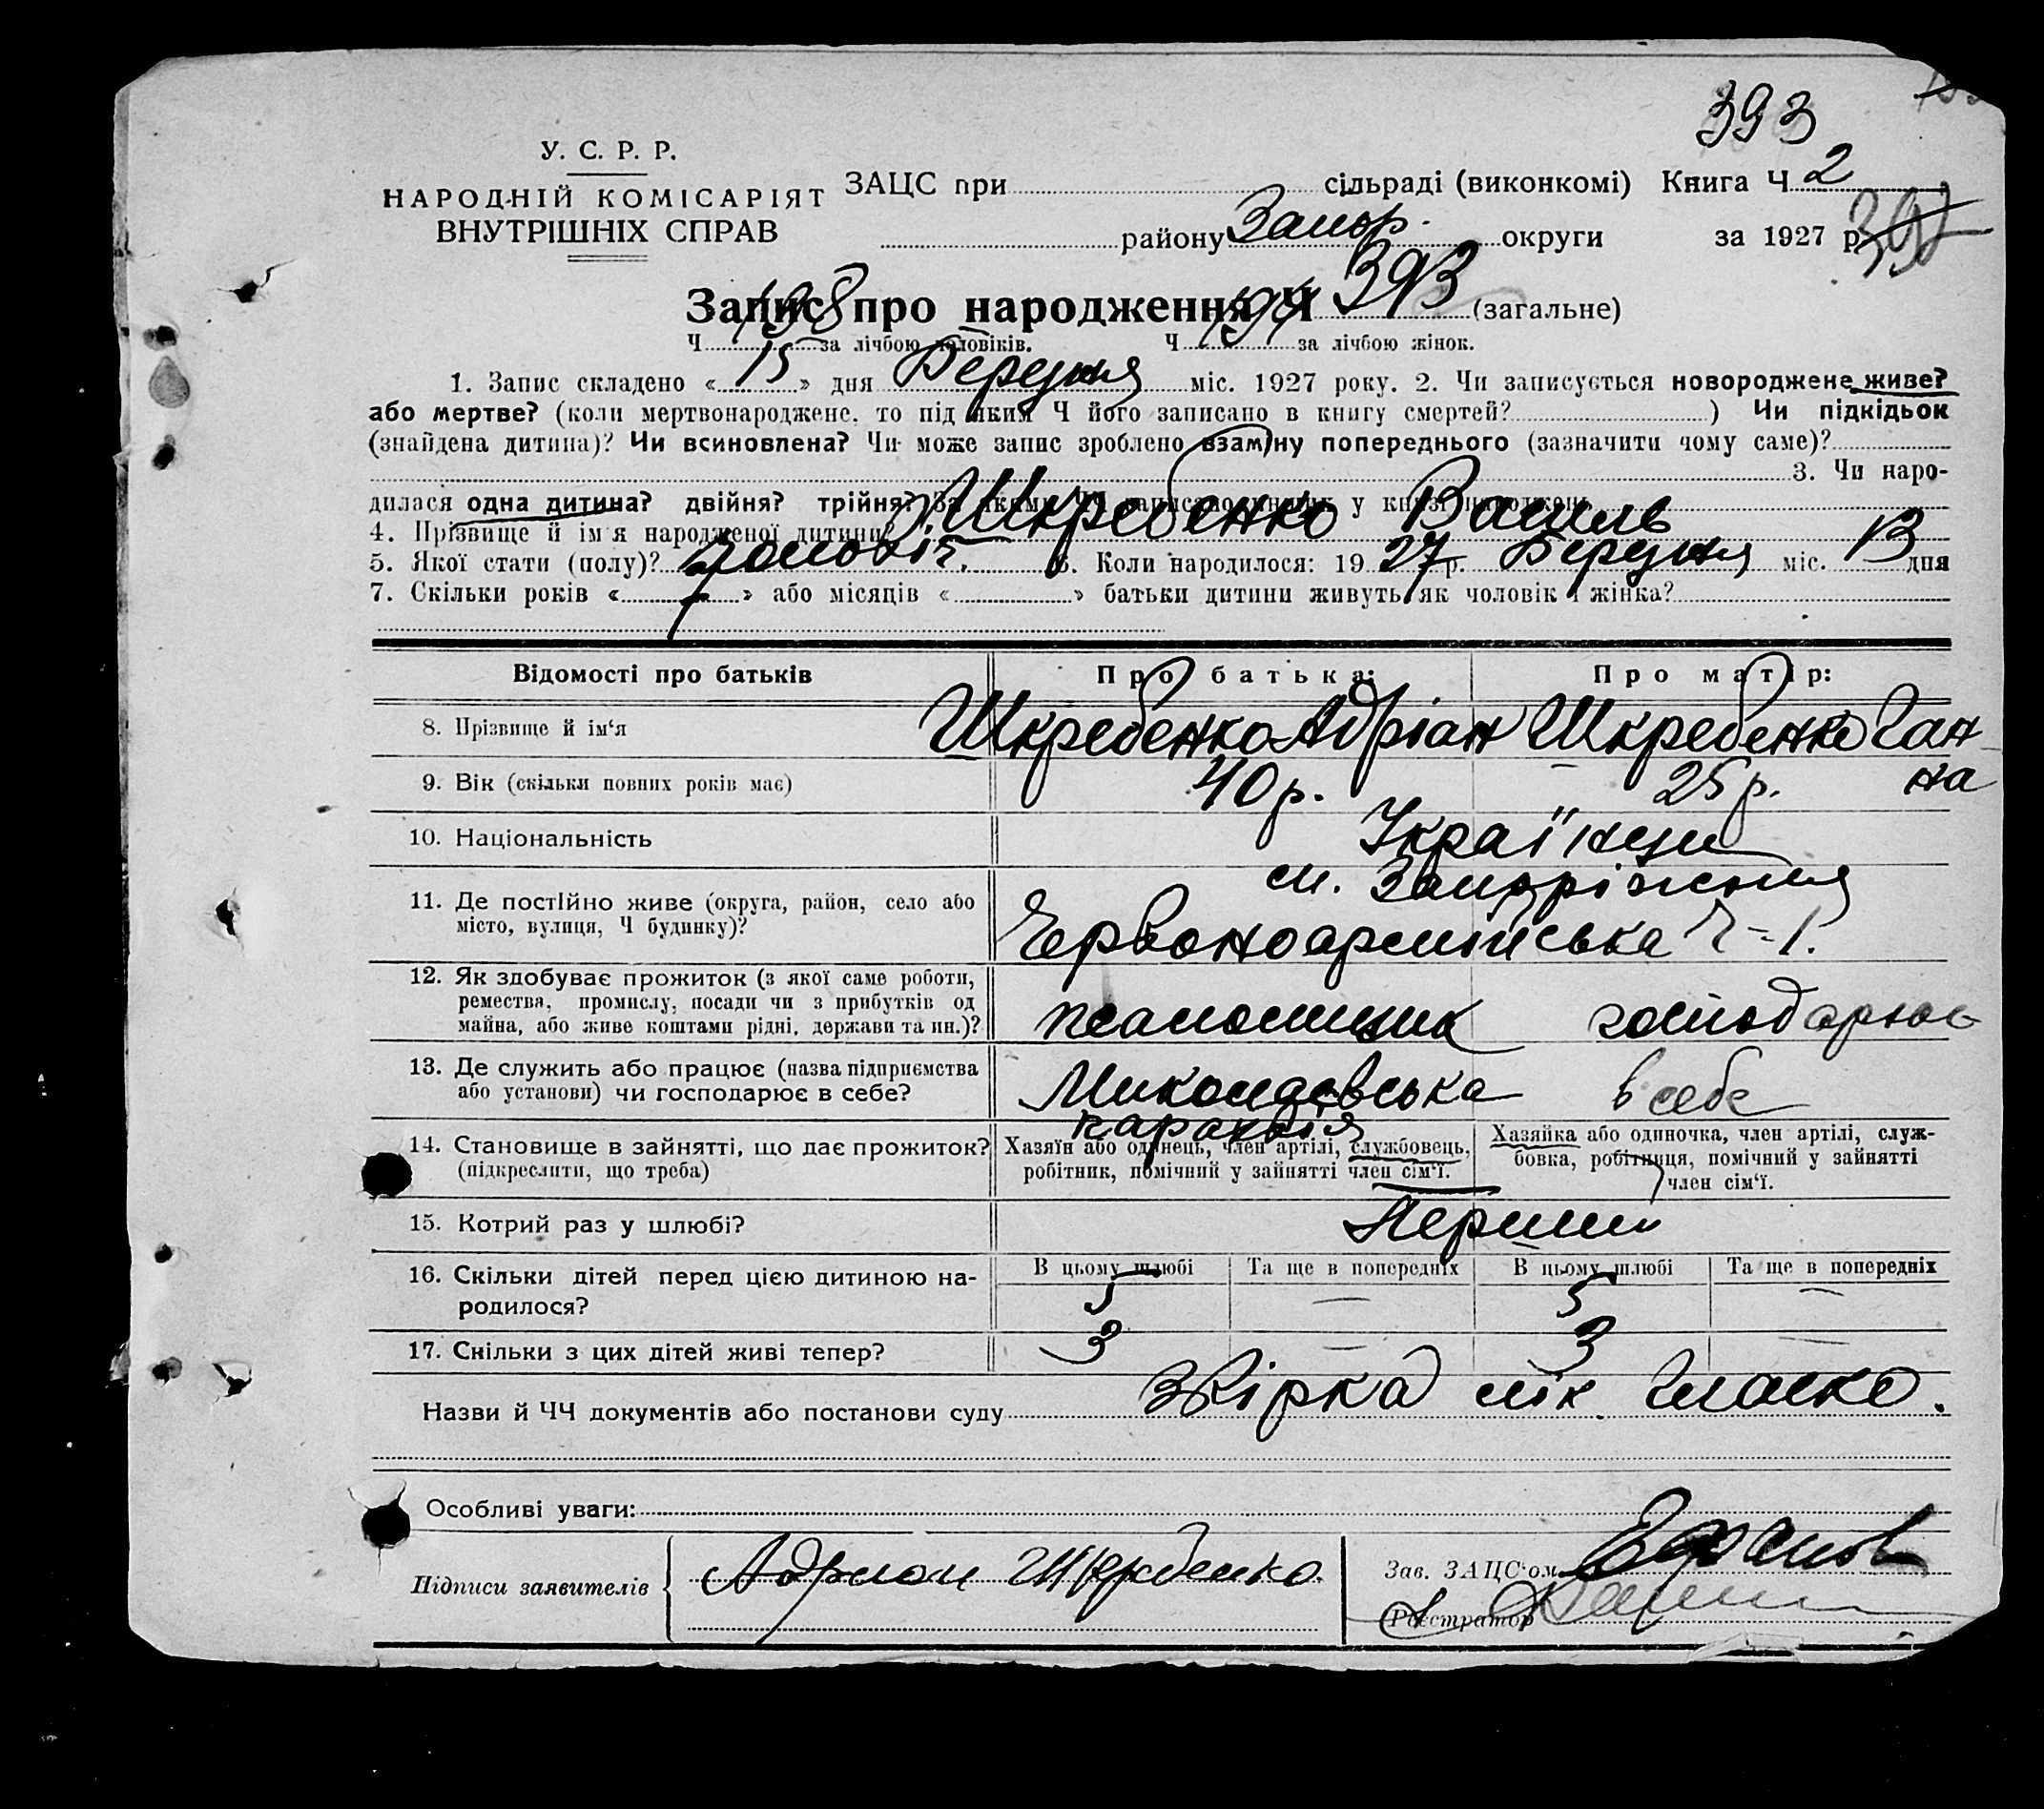 393
У. С. Р. Р.
НАРОДНІЙ КОМІСАРІЯТ
ВНУТРІШНІХ СПРАВ
ЗАЦС при сільраді (виконкомі) Книга Ч 2
району Запор. округи за 1927 р.
Запис про народження Ч 393 (загальне)
Ч 198 за лічбою чоловіків. Ч за лічбою жінок.
1. Запис складено « 15 » дня Березня міс. 1927 року. 2. Чи записується новороджене живе?
або мертве? (коли мертвонароджене, то під яким Ч його записано в книгу смертей? ) Чи підкідьок
(знайдена дитина)? Чи всиновлена? Чи може запис зроблено взамін попереднього (зазначити чому саме)?
3. Чи наро-
дилася одна дитина? двійня? трійня? у книзі народжень
4. Прізвище й ім'я народженої дитини? Шкребенко Василь
5. Якої стати (полу)? чоловіч. 6. Коли народилося: 19 27 р. Березня міс. 13 дня
7. Скільки років « 7 » або місяців « » батьки дитини живуть як чоловік і жінка?
Відомості про батьків Про батька: Про матір:
8. Прізвище й ім'я Шкребенко Адріан Шкребенко Ган-
на
9. Вік (скільки повних років має) 40 р. 25 р.
10. Національність Українци
11. Де постійно живе (округа, район, село або
місто, вулиця, Ч будинку)?
м. Запоріжжя
Червоноармійська Ч-1.
12. Як здобуває прожиток (з якої саме роботи,
ремества, промислу, посади чи з прибутків од
майна, або живе коштами рідні, держави та ин.)?
псаломщик господарює
13. Де служить або працює (назва підприємства
або установи) чи господарює в себе?
Миколаєвська
парахвія
в себе
14. Становище в зайнятті, що дає прожиток?
(підкреслити, що треба)
Хазяїн або одинець, член артілі, службовець,
робітник, помічний у зайнятті член сім'ї.
Хазяйка або одиночка, член артілі, служ-
бовка, робітниця, помічний у зайнятті
член сім'ї.
15. Котрий раз у шлюбі? Перший
16. Скільки дітей перед цією дитиною на-
родилося?
В цьому шлюбі Та ще в попередніх В цьому шлюбі Та ще в попередніх
5 — 5 —
17. Скільки з цих дітей живі тепер? 3 — 3 —
Назви й ЧЧ документів або постанови суду звірка лік.
Особливі уваги:
Підписи заявителів Адриан Шкребенко
Зав. ЗАЦС'ом
Реєстратор